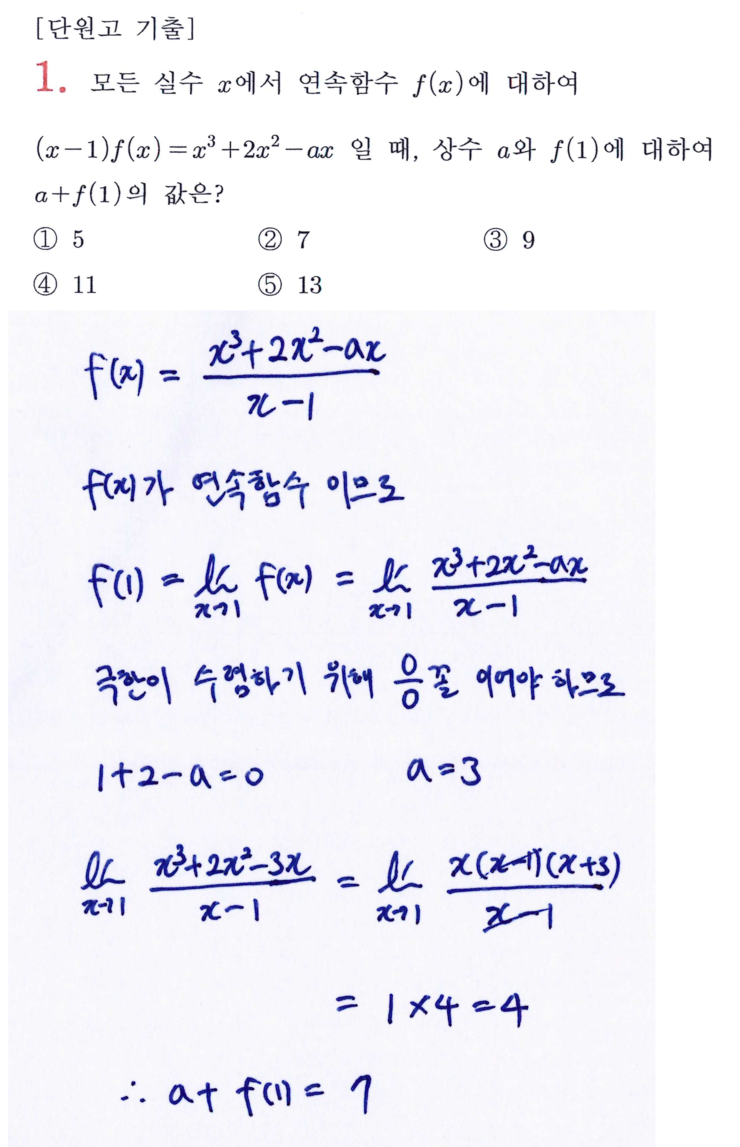 [단원고 기출]
1. 모든 실수 x에서 연속함수 f(x)에 대하여
(x-1)f(x)=x³+2x²-ax 일 때, 상수 a와 f(1)에 대하여
a+f(1)의 값은?
① 5 ② 7 ③ 9
④ 11 ⑤ 13
f(x) = (x³+2x²-ax)/(x-1)
f(x)가 연속함수 이므로
f(1) = lim_{x→1} f(x) = lim_{x→1} (x³+2x²-ax)/(x-1)
극한이 수렴하기 위해 0/0 꼴 이어야 하므로
1+2-a=0 a=3
lim_{x→1} (x³+2x²-3x)/(x-1) = lim_{x→1} x(x-1)(x+3)/(x-1)
= 1×4=4
∴ a+f(1)= 7